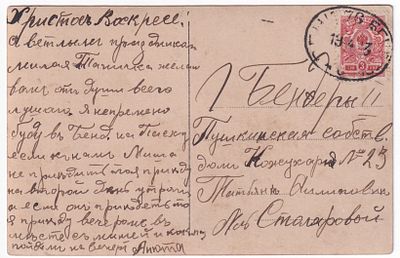 Христосъ Воскресе!
Светлымъ праздникомъ
милая Танюша желаю
вамъ отъ души всего
лучшаго. Я непремено
буду въ Бенд. на Пасху
если къ намъ Миша
не приедетъ то я приеду
на второй день утромъ
а если онъ приедетъ то
я приеду вечеромъ въ
месте съ Мишей и
пойдемъ на вечеръ Анюта
Бендеры
Пушкинская собств.
домъ Кожухаря № 23
Татьяне Филиповне
Сталаровой